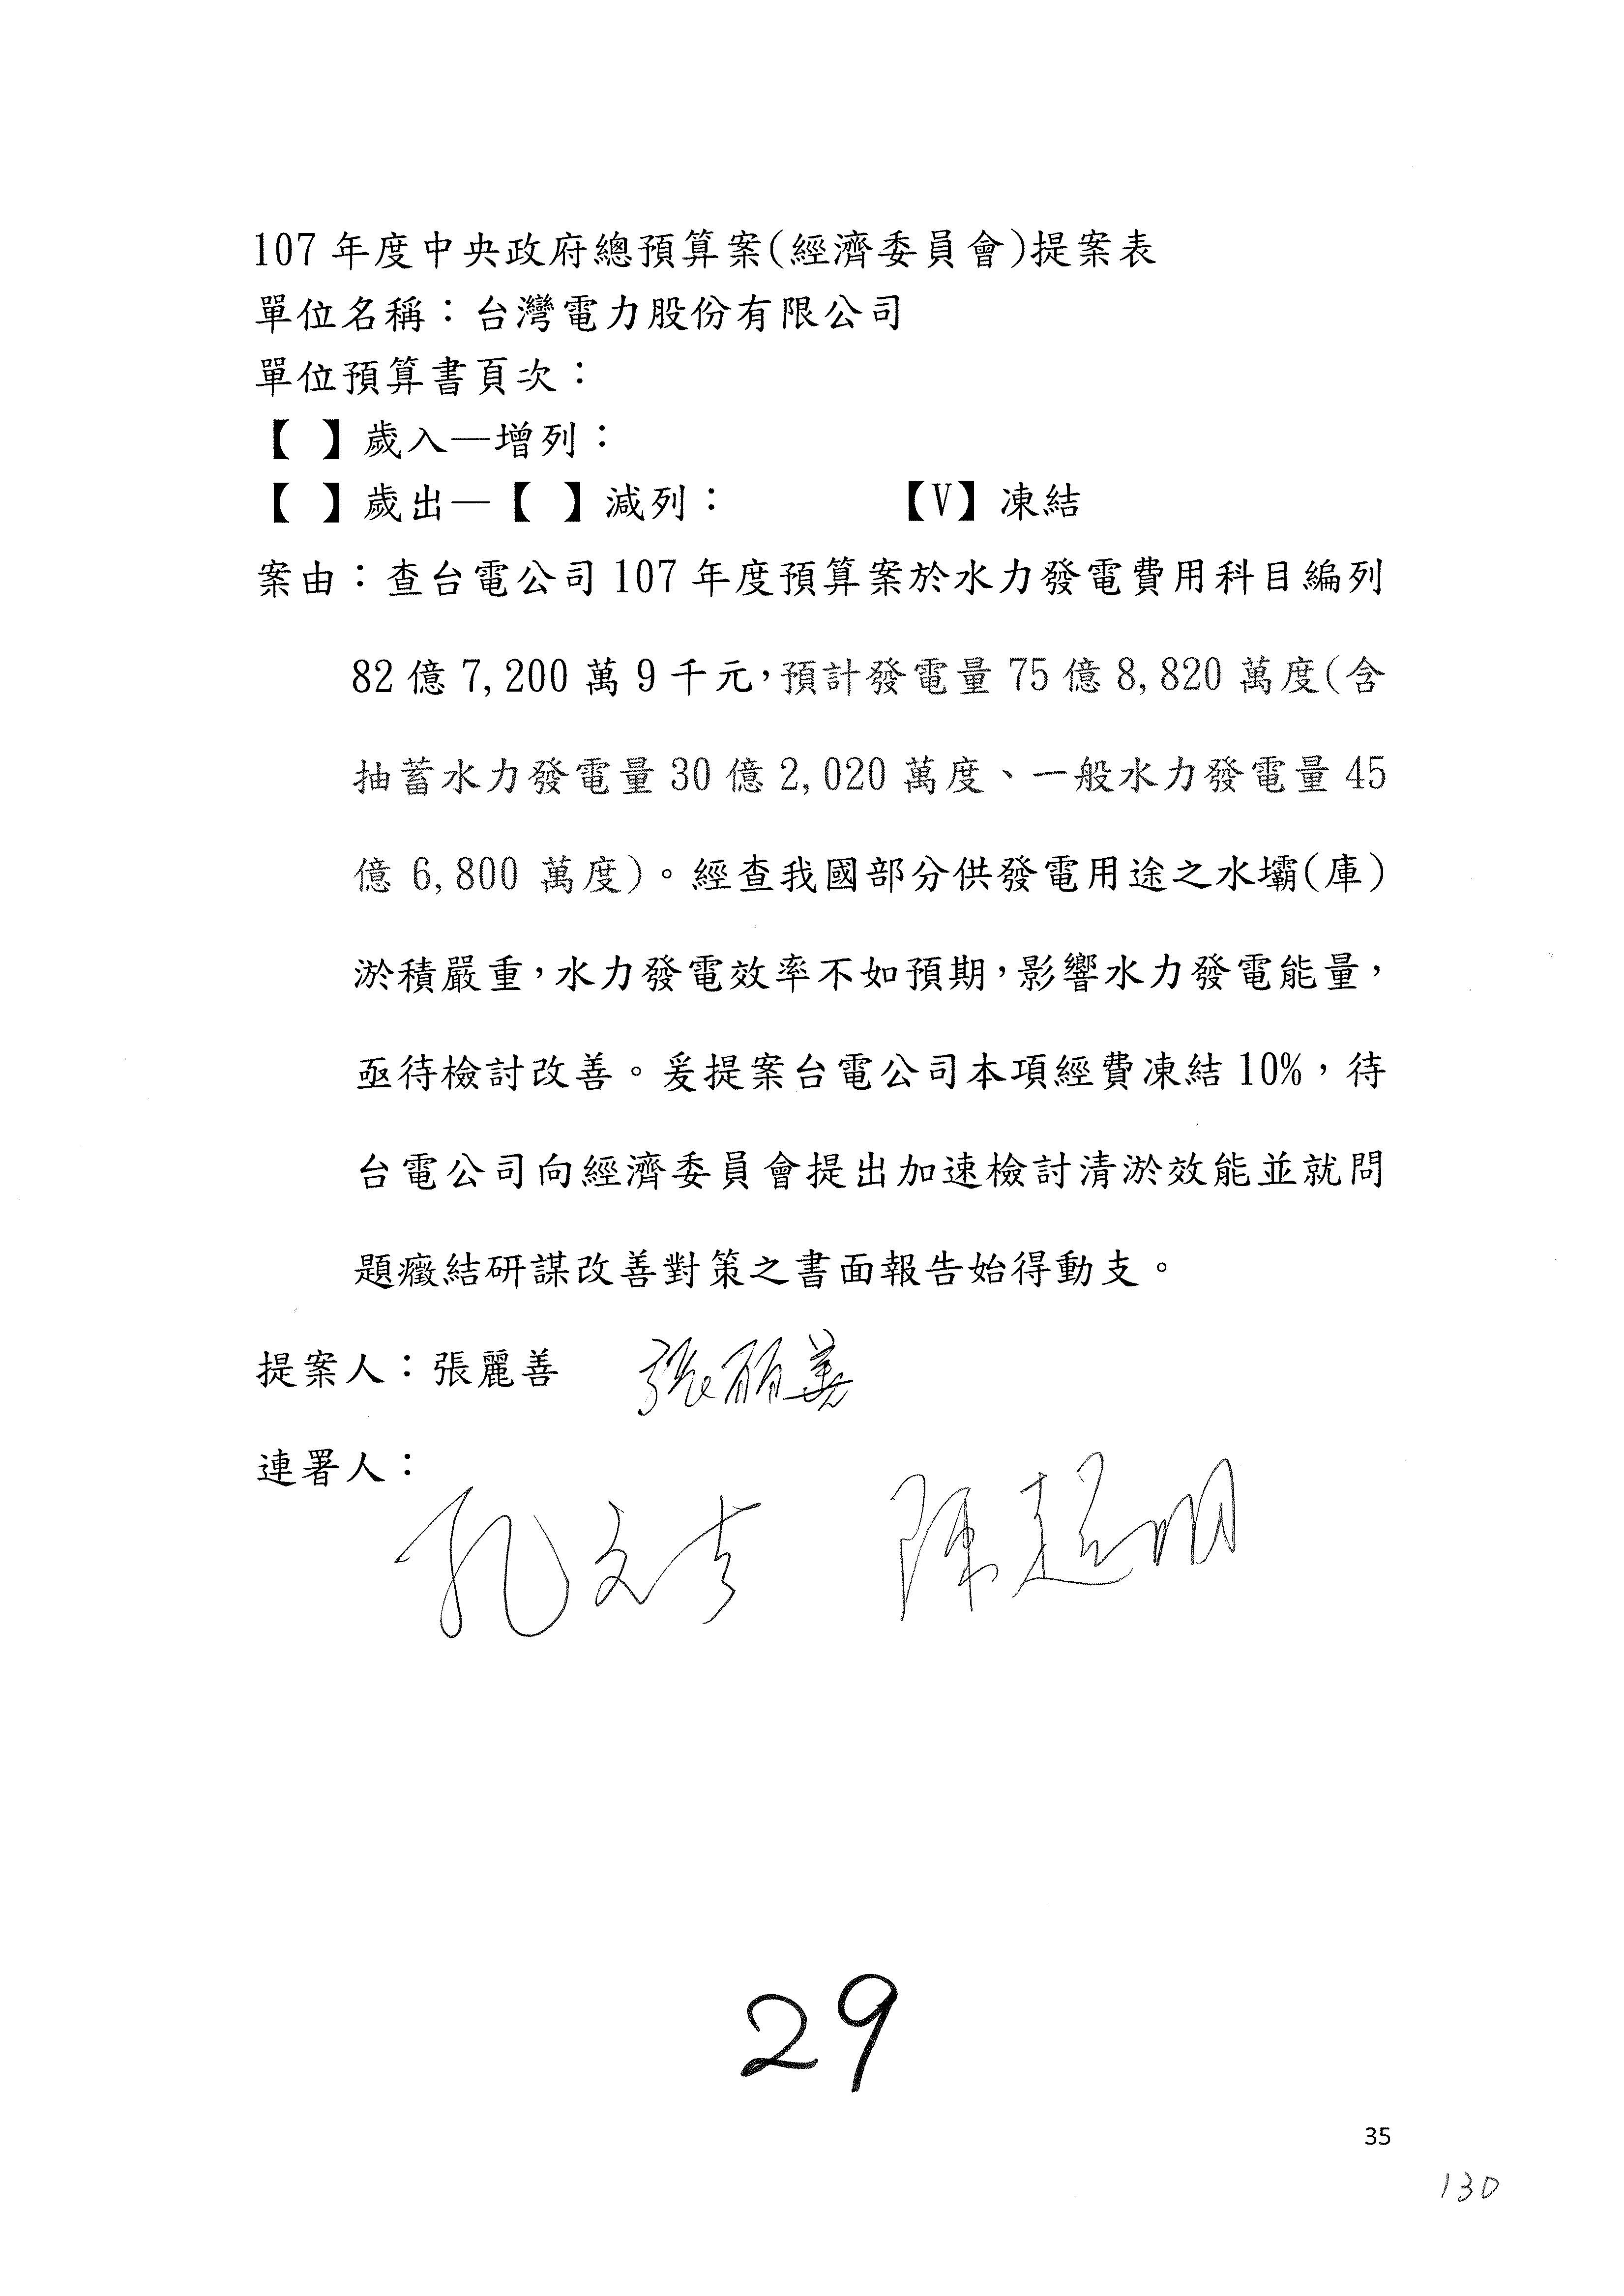 107 年度中央政府總預算案(經濟委員會)提案表
單位名稱：台灣電力股份有限公司
單位預算書頁次：
【 】歲入—增列：
【 】歲出—【 】減列： 【V】凍結
案由：查台電公司 107 年度預算案於水力發電費用科目編列
82 億 7,200 萬 9 千元，預計發電量 75 億 8,820 萬度(含
抽蓄水力發電量 30 億 2,020 萬度、一般水力發電量 45
億 6,800 萬度)。經查我國部分供發電用途之水壩(庫)
淤積嚴重，水力發電效率不如預期，影響水力發電能量，
亟待檢討改善。爰提案台電公司本項經費凍結 10%，待
台電公司向經濟委員會提出加速檢討清淤效能並就問
題癥結研謀改善對策之書面報告始得動支。
提案人：張麗善 張麗善
連署人：
孔文吉 陳超明
29
35
130